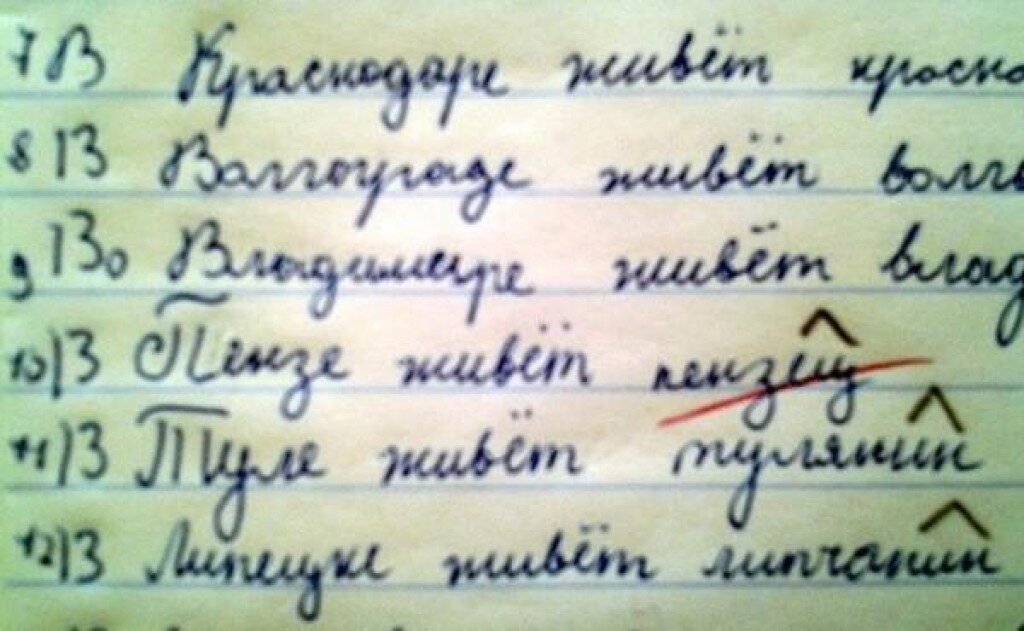 7 В Краснодаре живёт красно
8 В Волгограде живёт волго
9 Во Владимире живёт влад
10) В Пензе живёт пензец
11) В Туле живёт тулянин
12) В Липецке живёт липчанин